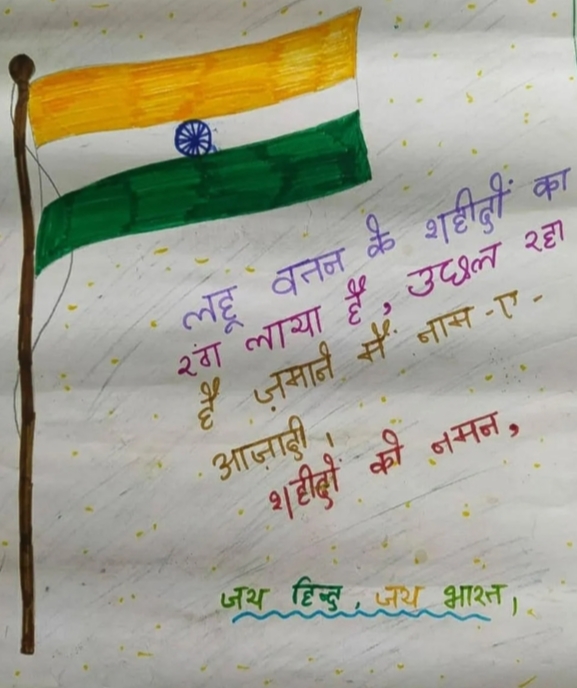 लहू वतन के शहीदों का
रंग लाया है, उछल रहा
है ज़माने में नाम-ए-
आज़ादी।
शहीदों को नमन,
जय हिन्द, जय भारत,